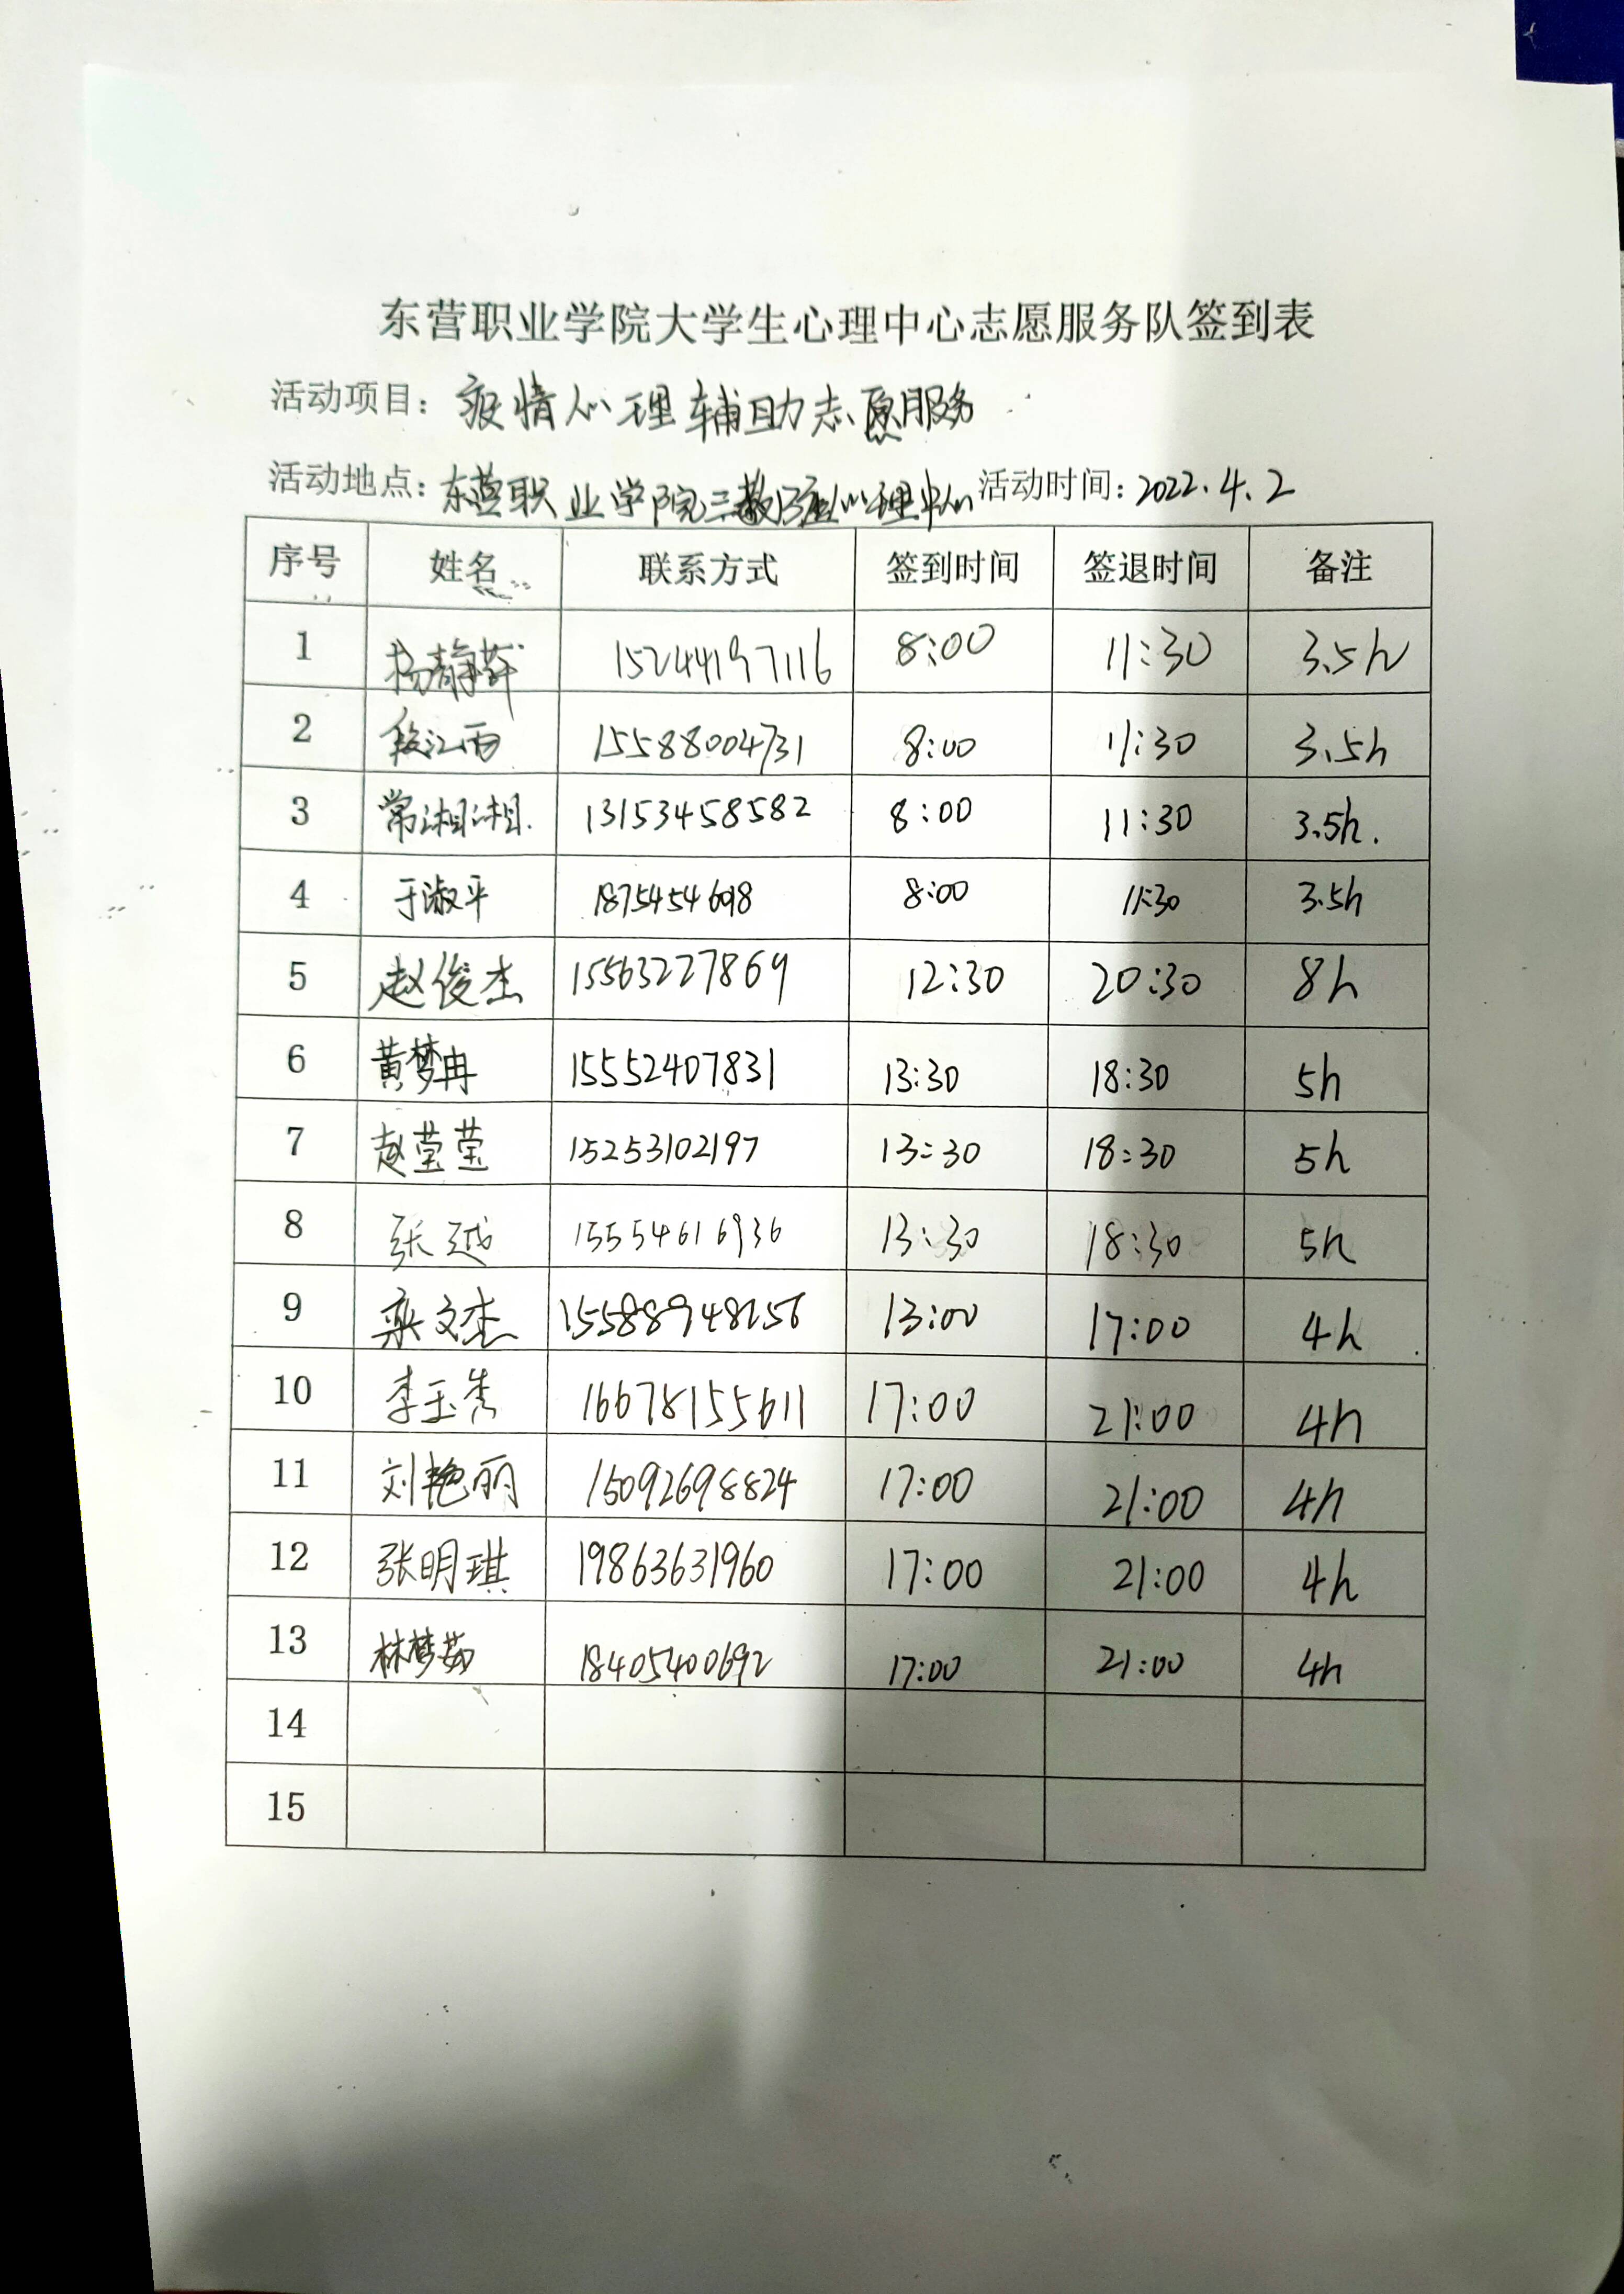 东营职业学院大学生心理中心志愿服务队签到表
活动项目：疫情心理辅助志愿服务
活动地点：东营职业学院三教心理中心 活动时间：2022.4.2
序号 姓名 联系方式 签到时间 签退时间 备注
1 杨静 15244197116 8:00 11:30 3.5h
2 段江雨 15588004731 8:00 11:30 3.5h
3 常湘湘. 13153458582 8:00 11:30 3.5h.
4 于淑平 8:00 11:30 3.5h
5 赵俊杰 15563227869 12:30 20:30 8h
6 黄梦冉 15552407831 13:30 18:30 5h
7 赵莹莹 15253102197 13:30 18:30 5h
8 张越 15554616936 13:30 18:30 5h
9 栾文杰 13:00 17:00 4h
10 李玉秀 16678155611 17:00 21:00 4h
11 刘艳丽 15092698824 17:00 21:00 4h
12 张明琪 19863631960 17:00 21:00 4h
13 林梦茹 18405400692 17:00 21:00 4h
14
15